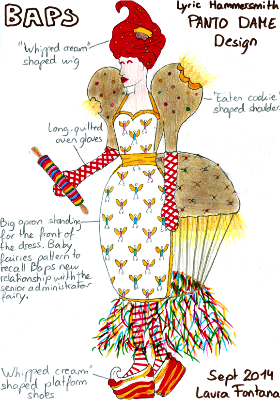 BAPS
Lyric Hammersmith
PANTO DAME
Design
"Whipped cream"
shaped wig
"Eaten cookie"
shaped shoulder
Long quilted
oven gloves
Big apron standing
for the front of
the dress. Baby
fairies pattern to
recall Baps new
relationship with the
senior administrator
fairy.
"Whipped cream"
shaped platform
shoes
Sept 2014
Laura Fontana